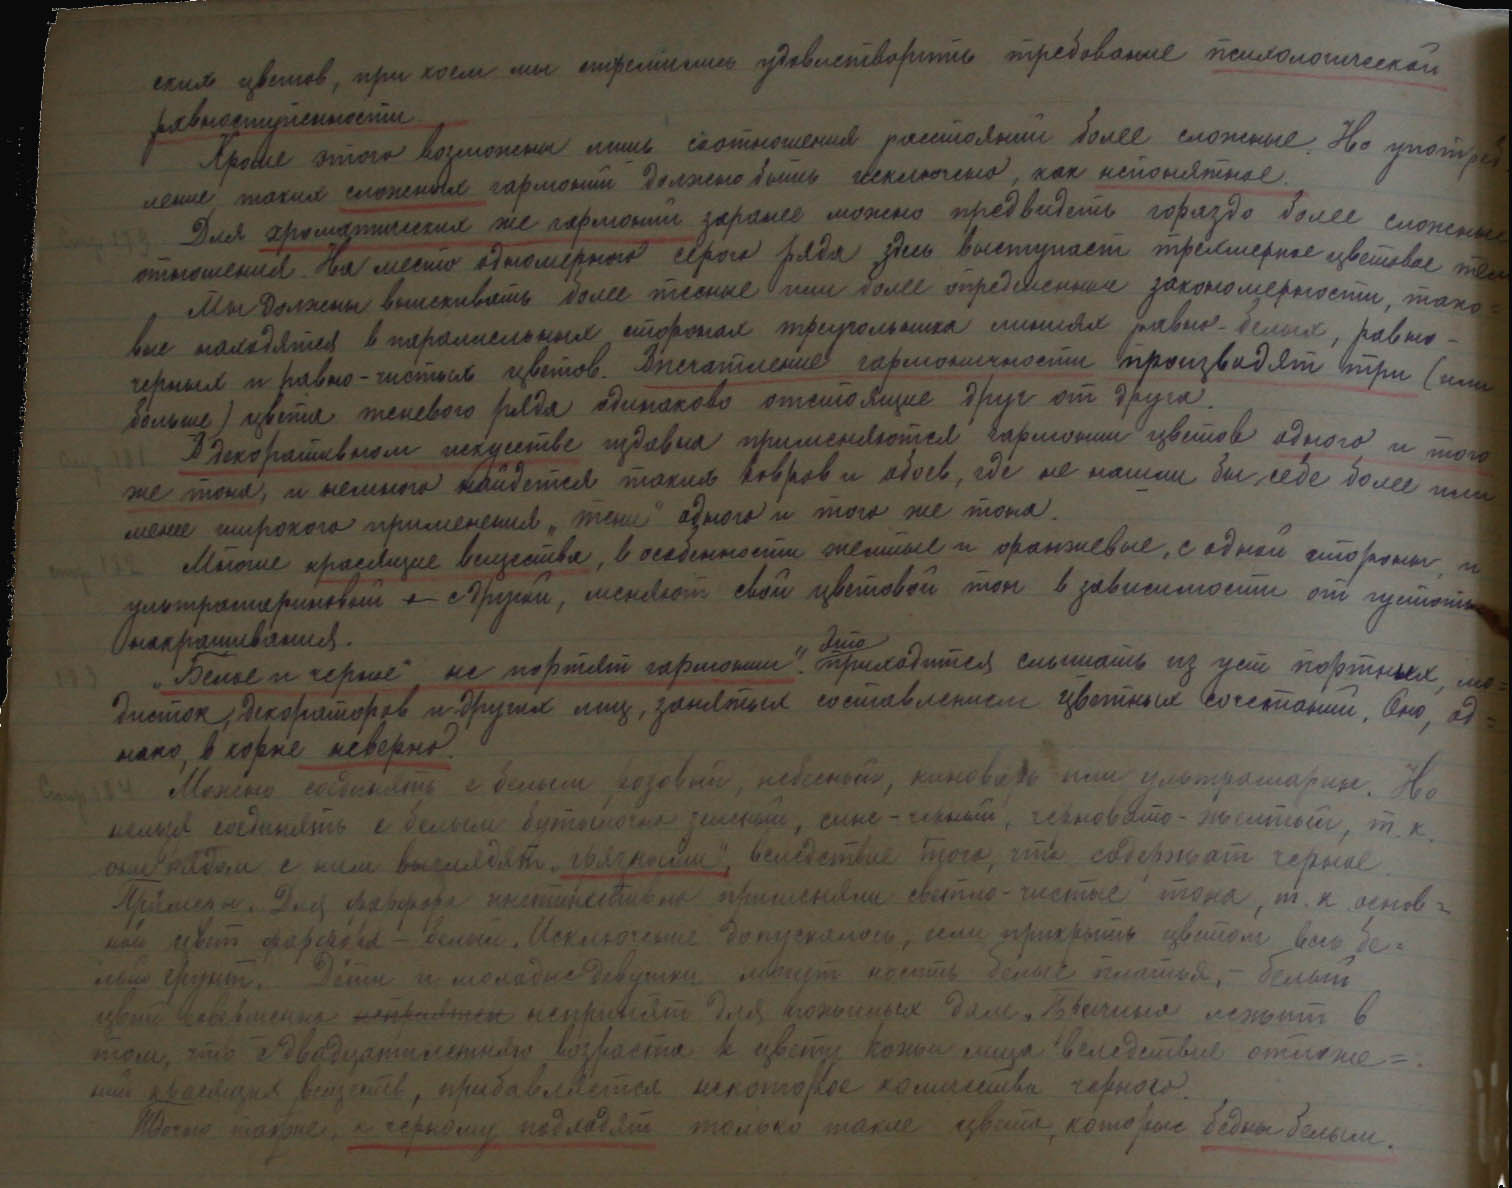 ских цветов, при коем мы стремились удовлетворить требование психологической
равноступенности.
Кроме этого возможны лишь соотношения расстояний более сложные. Но употреб
ление таких сложных гармоний должно быть исключено, как непонятное.
Стр. 179 Для хроматических же гармоний заранее можно предвидеть гораздо более сложные
отношения. На место одномерного серого ряда здесь выступает трехмерное цветовое тело
Мы должны выискивать более тесные или более определенные закономерности, тако=
вые находятся в параллельных сторонам треугольника линиях равно-белых, равно-
черных и равно-чистых цветов. Впечатление гармоничности производят три (или
больше) цвета теневого ряда одинаково отстоящие друг от друга.
стр. 181 В декоративном искусстве издавна применяются гармонии цветов одного и того
же тона, и немного найдется таких ковров и обоев, где не нашли бы себе более или
менее широкого применения „тени" одного и того же тона.
стр. 182 Многие красящие вещества, в особенности желтые и оранжевые, с одной стороны, и
ультрамариновый с другой, меняют свой цветовой тон в зависимости от густоты
накрашивания.
183 „Белое и черное" не портят гармонии". Это приходится слышать из уст портных, мо=
дисток, декораторов и других лиц, занятых составлением цветных сочетаний. Оно, од=
нако, в корне неверно.
Стр. 184 Можно соединять с белым розовый, небесный, киноварь или ультрамарин. Но
нельзя соединять с белым бутылочно зеленый, сине-черный, черновато-желтый, т.к.
они рядом с ним выглядят „грязными", вследствие того, что содержат черное.
Пример. Для фарфора инстинктивно применяли светло-чистые тона, т.к. основ=
ной цвет фарфора - белый. Исключение допускалось, если прикрыть цветом весь бе=
лый грунт. Дети и молодые девушки могут носить белые платья, - белый
цвет совершенно неприятен неприятен для пожилых дам. Причина лежит в
том, что с двадцатилетнего возраста к цвету кожи лица вследствие отложе=
ний красящих веществ, прибавляется некоторое количество черного.
Точно также, к черному подходят только такие цвета, которые бедны белым.